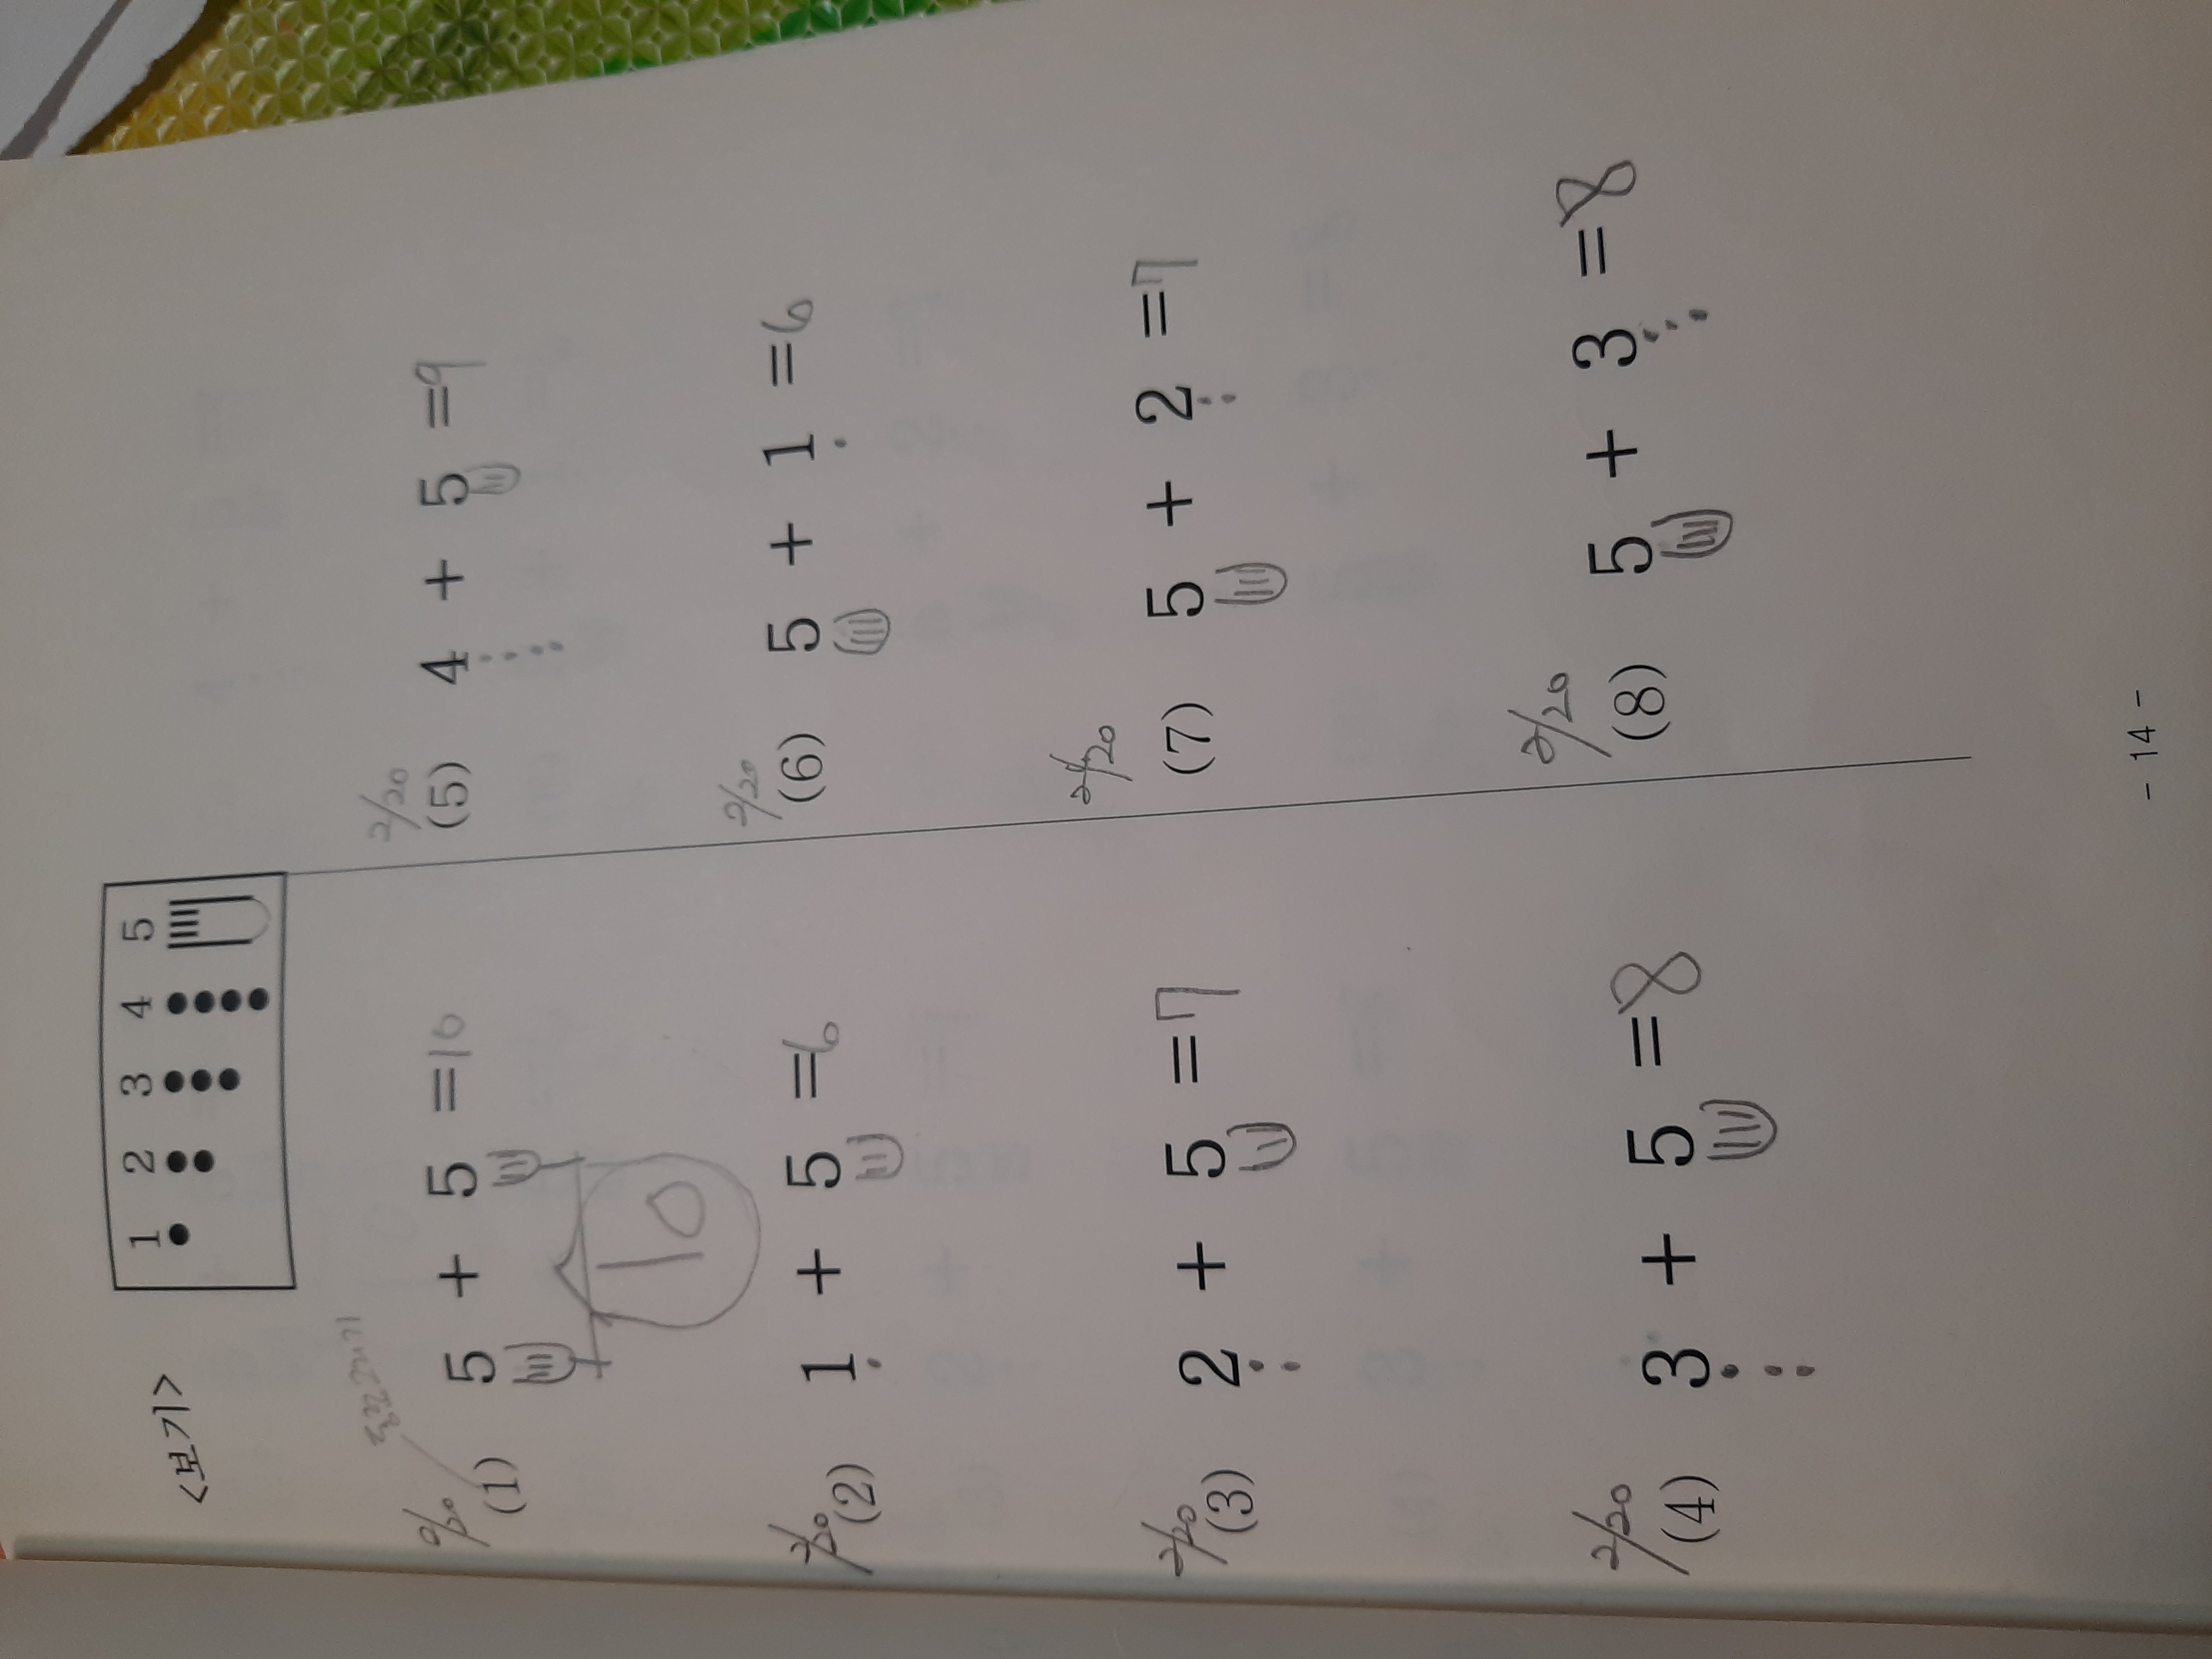 <보기>
1 2 3 4 5
2/20
(1) 5 + 5 =10
10
2/20
(2) 1 + 5 =6
2/20
(3) 2 + 5 =7
2/20
(4) 3 + 5 =8
2/20
(5) 4 + 5 =9
2/20
(6) 5 + 1 =6
2/20
(7) 5 + 2 =7
2/20
(8) 5 + 3 =8
- 14 -